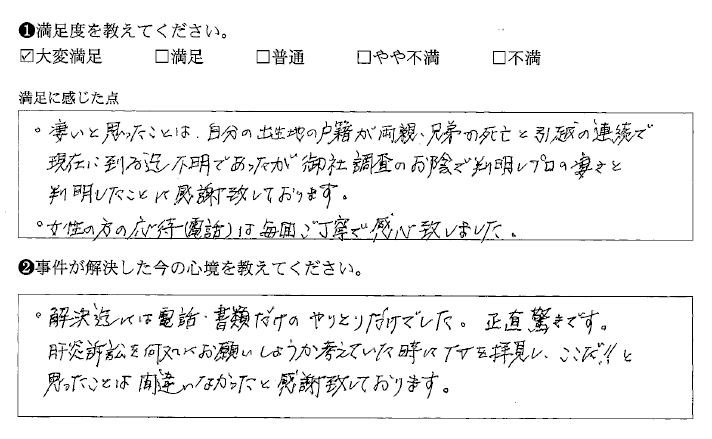 ❶満足度を教えてください。
☑大変満足 □満足 □普通 □やや不満 □不満
満足に感じた点
。凄いと思ったことは、自分の出生地の戸籍が両親、兄弟の死亡と引越の連続で
現在に到る迄不明であったが御社調査のお陰で判明しプロの凄さと
判明したことに感謝致しております。
。女性の方の応待(電話)は毎回ご丁寧で感心致しました。
❷事件が解決した今の心境を教えてください。
。解決迄には電話・書類だけのやりとりだけでした。正直驚きです。
肝炎訴訟を何処にお願いしようか考えていた時に を拝見し、ここだ!!と
思ったことは間違いなかったと感謝致しております。